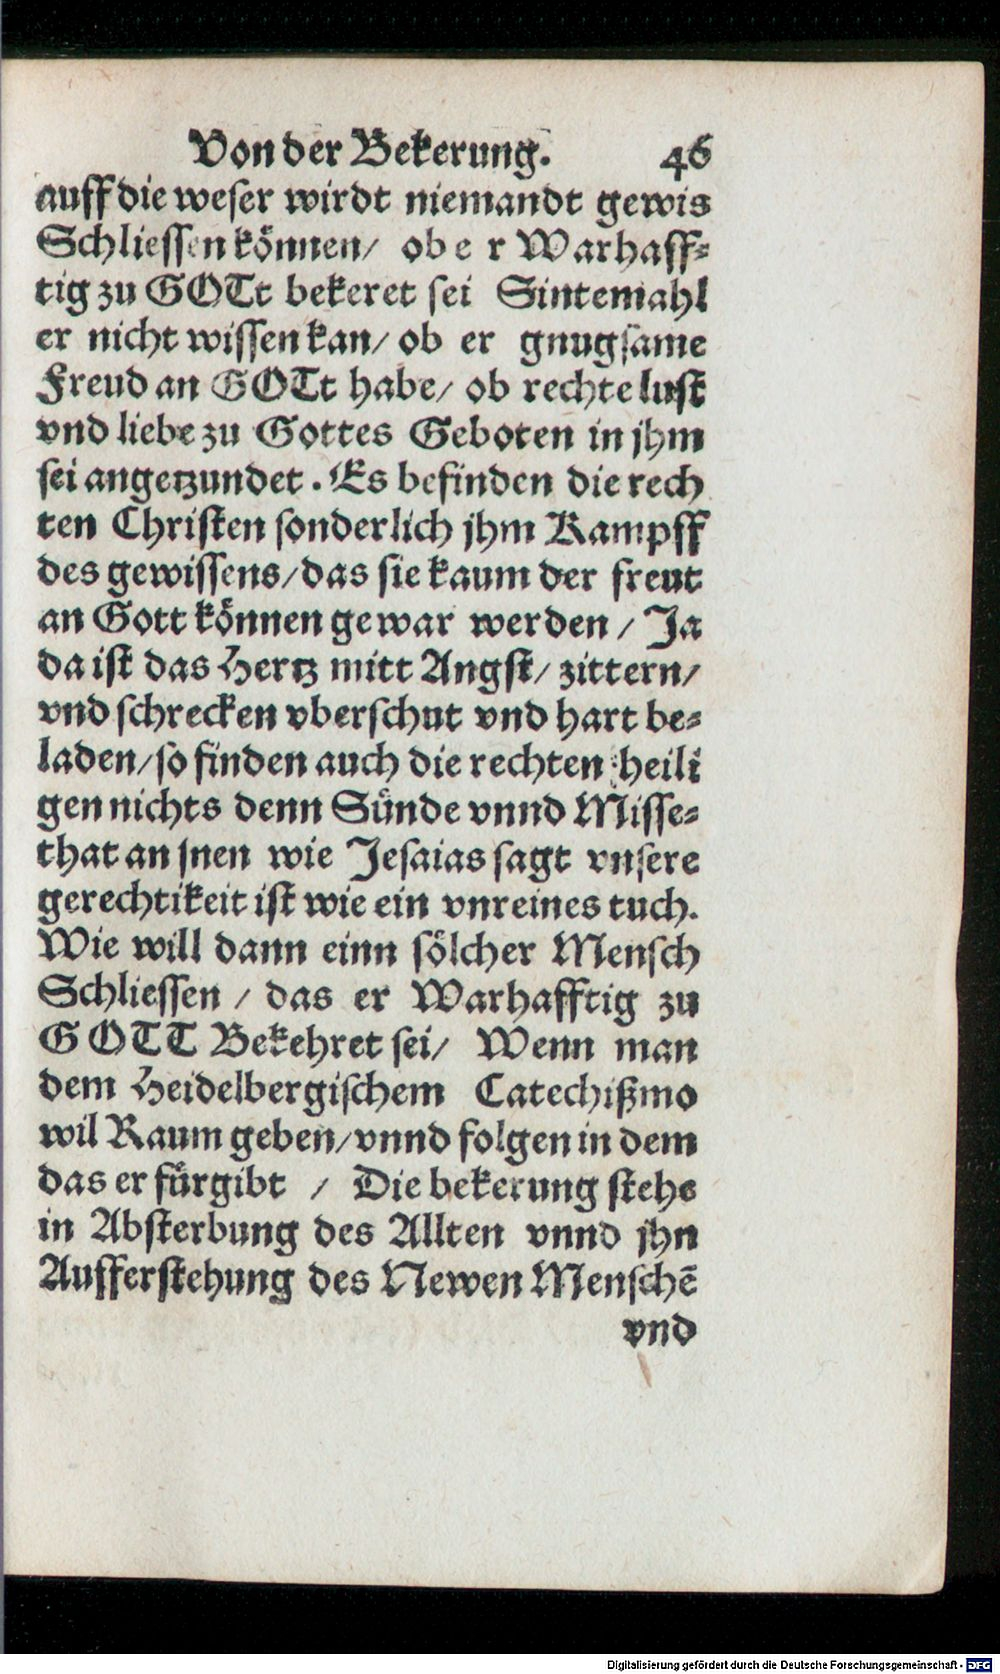 Von der Bekerung. 46
auff die weser wirdt niemandt gewis
Schliessen können/ ob e r Warhaff-
tig zu GOTt bekeret sei Sintemahl
er nicht wissen kan/ ob er gnugsame
Freud an GOTt habe/ ob rechte lust
vnd liebe zu Gottes Geboten in jhm
sei angetzundet. Es befinden die rech
ten Christen sonderlich jhm Kampff
des gewissens/das sie kaum der freut
an Gott können gewar werden/ Ja
da ist das Hertz mitt Angst/ zittern/
vnd schrecken vberschut vnd hart be-
laden/so finden auch die rechten heili
gen nichts denn Sünde vnnd Misse-
that an jnen wie Jesaias sagt vnsere
gerechtikeit ist wie ein vnreines tuch.
Wie will dann einn sölcher Mensch
Schliessen / das er Warhafftig zu
GOTT Bekehret sei/ Wenn man
dem Heidelbergischem Catechißmo
wil Raum geben/vnnd folgen in dem
das er fürgibt / Die bekerung stehe
in Absterbung des Allten vnnd jhn
Aufferstehung des Newen Menschē
vnd
Digitalisierung gefördert durch die Deutsche Forschungsgemeinschaft - DFG